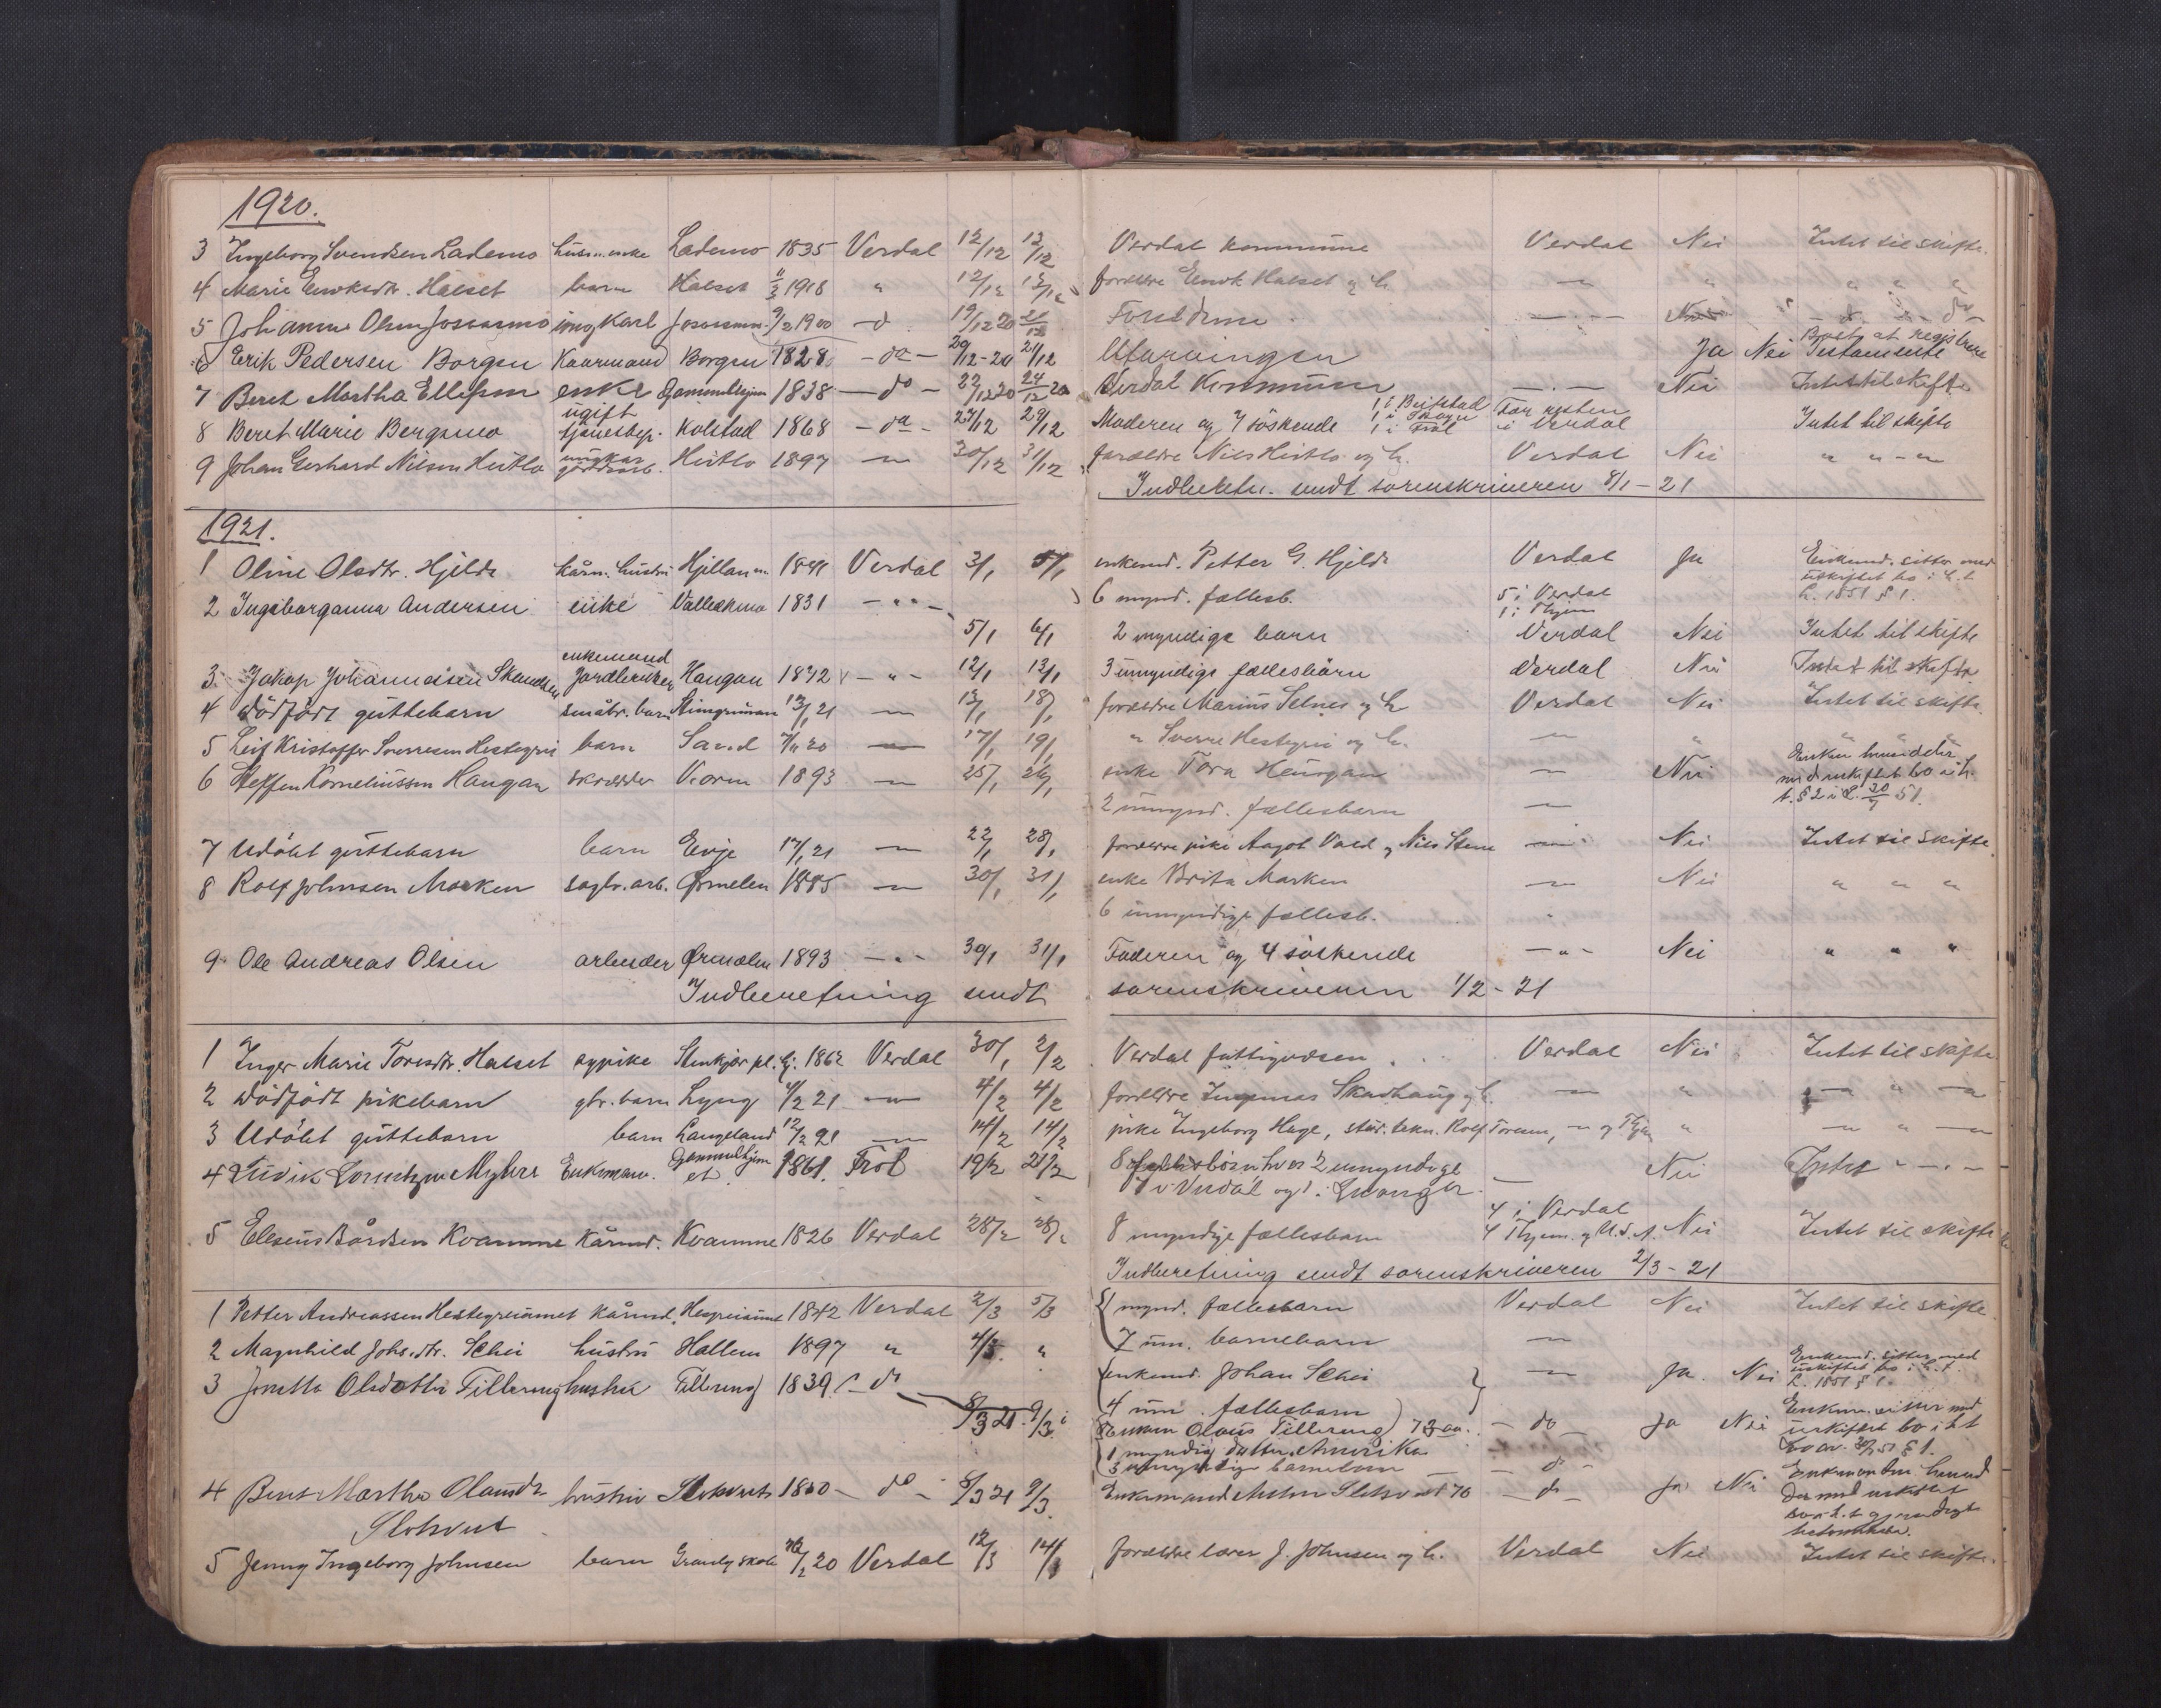 1920.
3 Ingeborg Svendsen Lademo husm. enke Lademo 1835 Verdal 12/12 13/12 Verdal kommune Verdal Nei Intet til skifte.
4 Marie Enoksdtr. Halset barn Halset 11/3 1918 " 12/12 13/12 forældre Enok Halset og h. — " " " "
5 Johannes Olsen Josvasmo ungkarl 9/2 1900 — d 19/12 20 21/12 Foreldrene — . —
6 Erik Pedersen Borgen Kaarmand Borgen 1828 — do — 20/12-20 21/12 Utarvingen Ja Nei Testamente
7 Beret Martha Ellefsen enke Gammelhjem 1838 — do — 22/12 20 24/12 20 Verdal Kommune — . — Nei Intet til skifte
8 Beret Marie Bergsmo ugift tjenestep. Kolstad 1868 — do — 27/12 29/12 Moderen og 7 söskende 1 i Beitstad 1 i Skogn 1 i Frol resten i Verdal Intet til skifte
9 Johan Gerhard Nilsen ungkar gårdsarb. 1897 — " — 30/12 31/12 forældre Nils og h. Verdal Nei " " - "
Indberetn. sendt sorenskriveren 8/1 - 21
1921.
1 Oline Olsdtr. Hjelde kårm. hustru 1841 Verdal 3/1 5/1 enkemd. Petter G. Hjelde Verdal Ja Enkemd. sitter med uskiftet bo i h. t. L. 1851 § 1.
2 Ingeborganna Andersen enke 1831 — " — 6 mynd. fællesb. 5 i Verdal 1 i Thjem
5/1 6/1 2 myndige barn Verdal Nei Intet til skifte
3 Jakop Johannesen enkemand Jordbruker Haugan 1842 — " — 12/1 13/1 3 umyndige fællesbarn Verdal Nei Intet til skifte
4 Dödfödt guttebarn småbr. barn 13/1 21 — " — 13/1 18/1 forældre Marius Selnes og h Verdal Nei Intet til skifte.
5 Leif Kristoffer Sverresen Hestegrei barn Sand 7/11 20 — " — 17/1 19/1 " Sverre Hestegrei og h. — " — " " "
6 Steffen Korneliussen Haugan skrædder 1893 — " — 25/1 26/1 enke Tora Haugan — " — Nei Enken hensidder med uskiftet bo i h. t. § 2 i L. 30/7 51.
2 umynd. fællesbarn — " —
7 Udöbt guttebarn barn Evje 17/1 21 — " — 22/1 28/1 forældre pike Aagot Vold og Nils — " — Nei Intet til skifte.
8 Rolf Johnsen Marken sagbr. arb. Ørmelen 1885 — " — 30/1 31/1 enke Brita Marken — " — Nei " " "
6 umyndige fællesb. "
9 Ole Andreas Olsen arbeider Ørmelen 1893 — " — 30/1 31/1 Faderen og 4 söskende — " — Nei " " "
Indberetning sendt sorenskriveren 1/2 - 21
1 Inger Marie Toresdtr. Halset sypike Stenkjær pl. hj. 1862 Verdal 30/1 2/2 Verdal fattigvæsen Verdal Nei Intet til skifte
2 Dödfödt pikebarn gbr. barn Lyng 4/2 21 — " — 4/2 4/2 forældre Ingemar Skavhaug og h. — " — " — " " — "
3 Udöbt guttebarn barn Langeland 12/2 21 — " — 14/2 14/2 pike Ingeborg Hage, stud. tekn. Rolf — " og Thjem " — " " — "
4 Ludvik Lorentzen Myhre Enkemann. Gammelhjem et 1861. Frol 19/2 21/2 8 fellesbörn hvor 2 umyndige — Nei Intet " — . —
7 i Verdal og 1 i Levanger
5 Elesius Bårdsen Kvamme Kårmd. Kvamme 1826 Verdal 28/2 28/2 8 myndige fællesbarn 4 i Verdal 4 Thjem. og U.S.A. Nei Intet til skifte
Indberetning sendt sorenskriveren 2/3 - 21
1 Petter Andreassen Hestegreiommet kårmd. 1842 Verdal 2/3 5/3 1 mynd. fællesbarn Verdal Nei Intet til skifte
7 um. barnebarn — " —
2 Magnhild Johs.dtr. Schei hustru Hallem 1897 " 4/3. " enkemd. Johan Schei — " — Ja. Nei Enkemd. sitter med uskiftet bo i h. t. L. 1851 § 1.
4 um. fællesbarn
3 Jonetta Olsdatter Tillerung hustru Tillerung 1839 — do 8/3 21. 9/3 Enkem Olaus Tillerung 73 aar. — do — Ja Nei Enkem. sitter med uskiftet bo i h t lov av 30/7 51 § 1.
1 myndig datter Amerika
3 umyndige barnebarn — d —
4 Beret Martha Olausdtr hustru 1850 — do — 8/3 21 9/3. Enkemand 76 — do — Ja Nei
5 Jenny Ingeborg Johnsen barn skole 20 Verdal 12/3 14/3 forældre lærer J. Johnsen og h. Verdal Nei Intet til skifte.